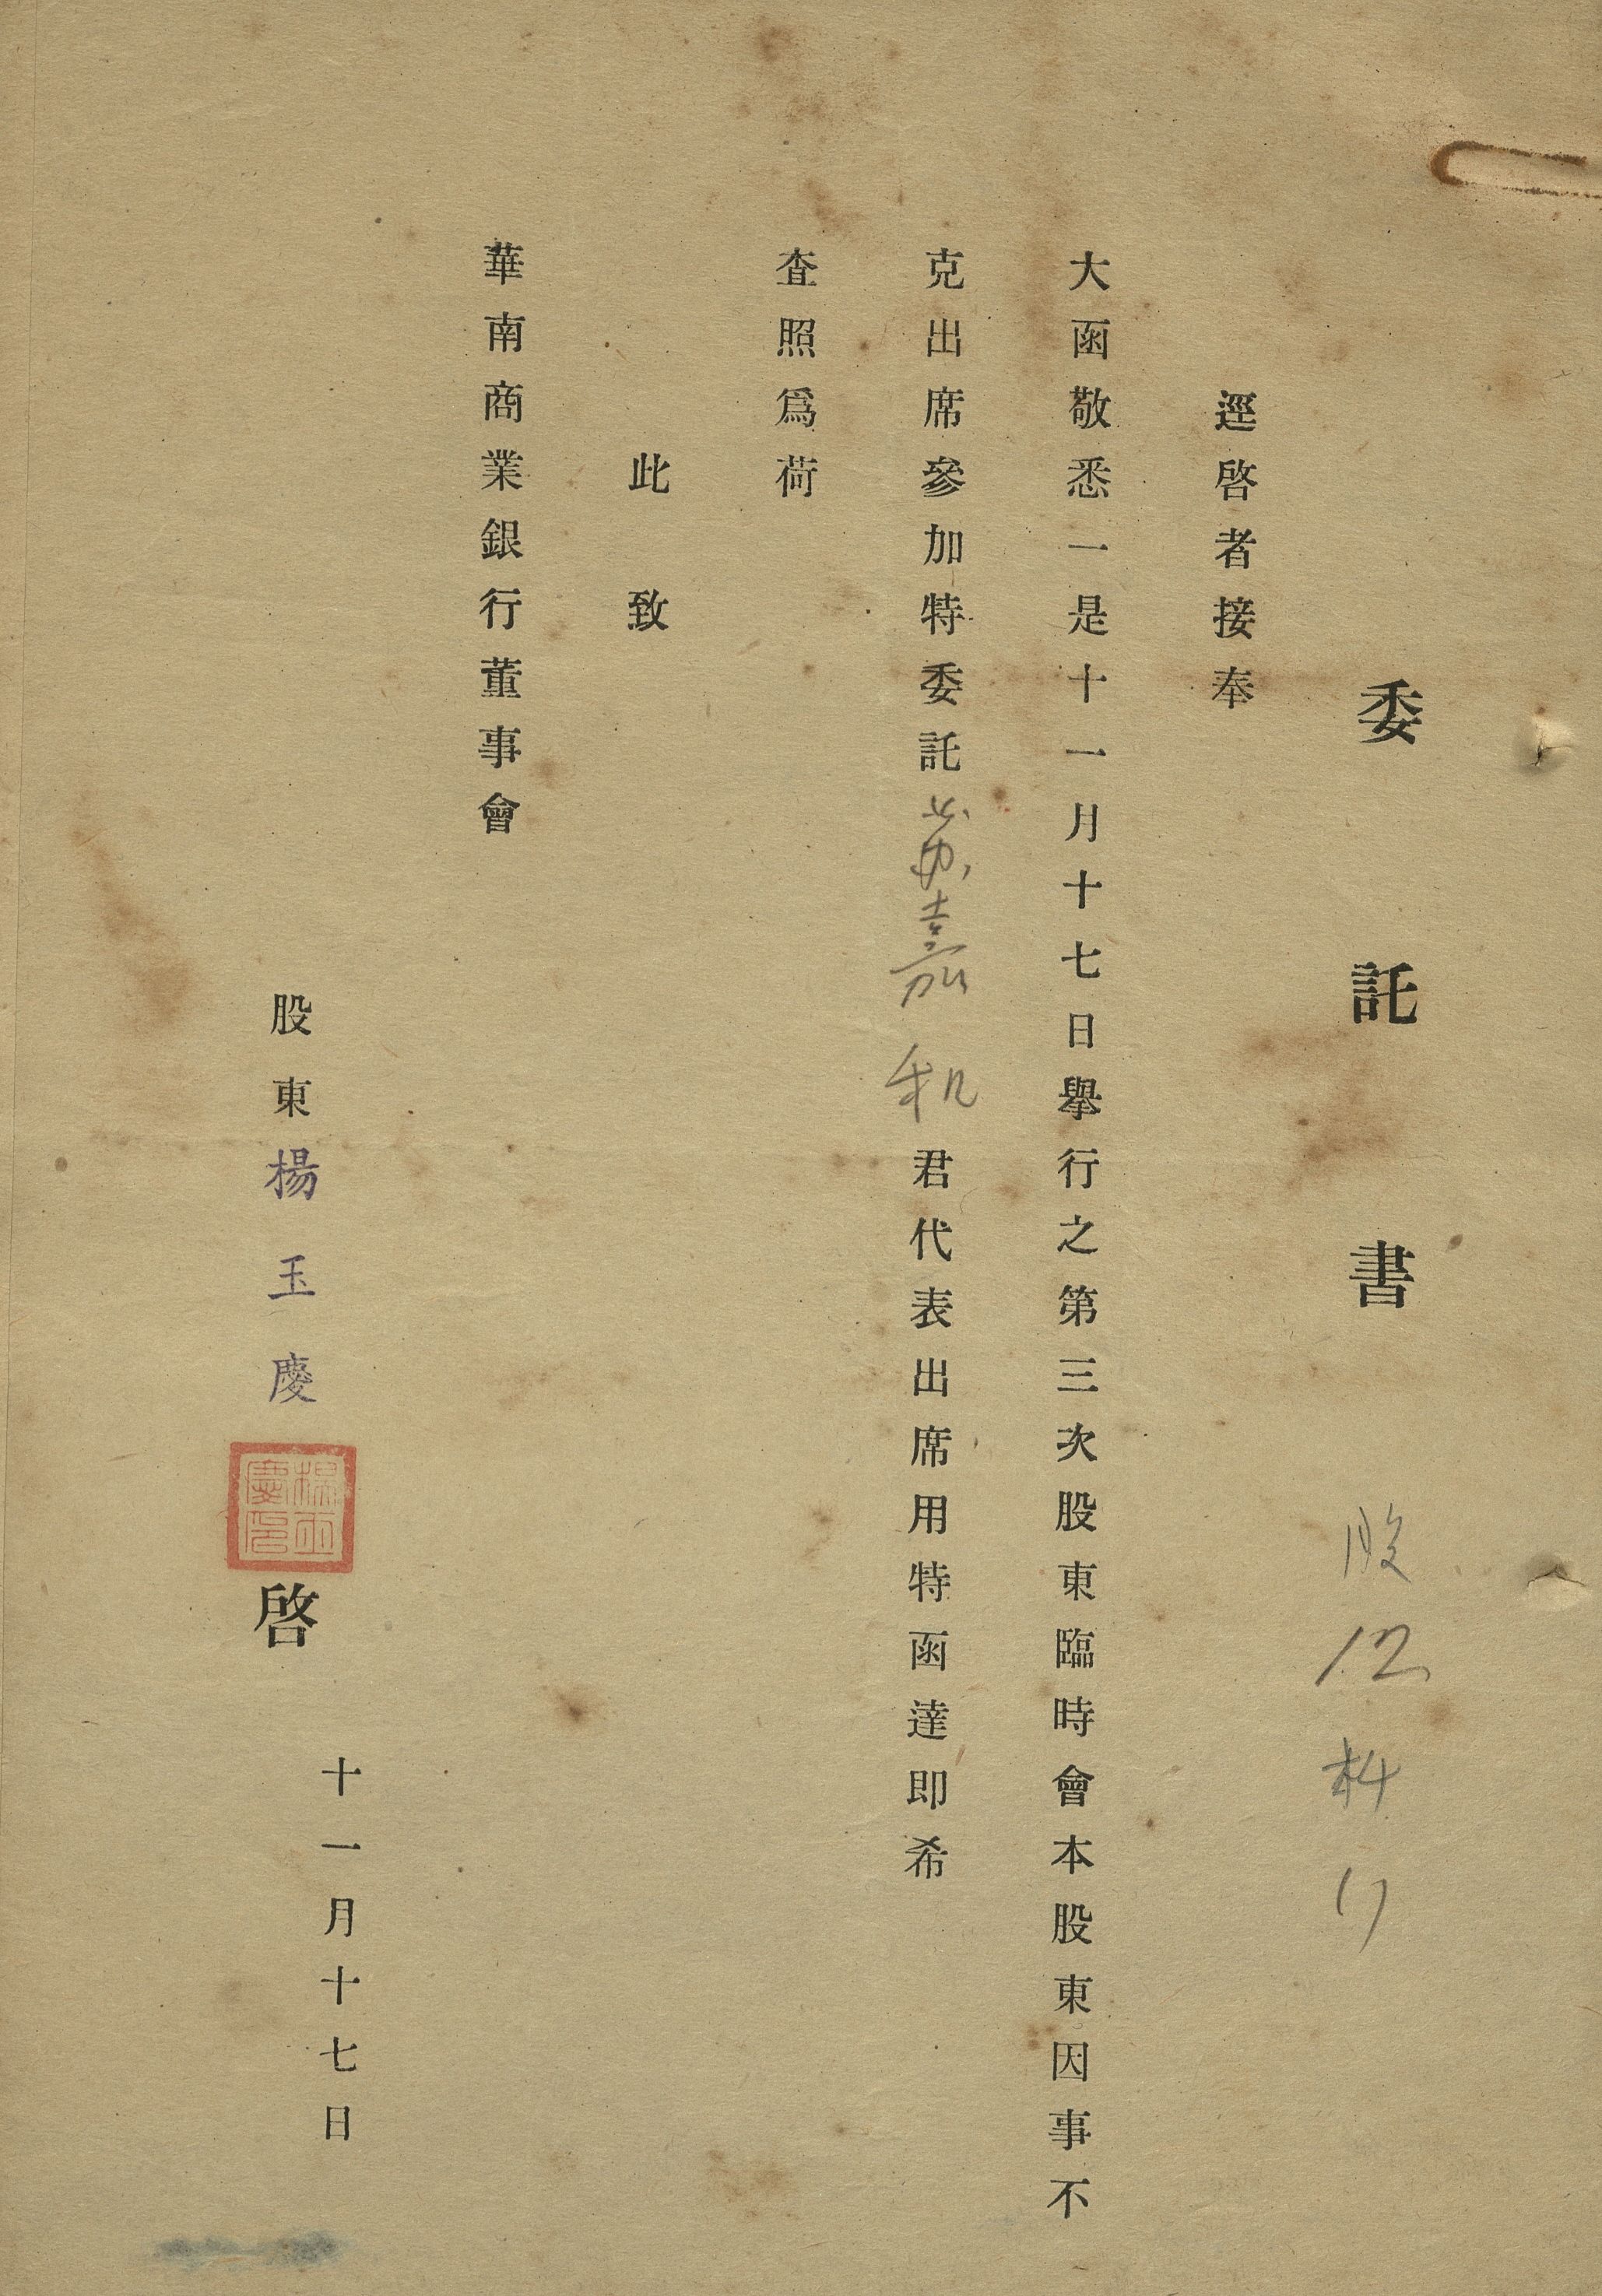 委託書
股 12
逕啓者接奉
大函敬悉一是十一月十七日舉行之第三次股東臨時會本股東因事不
克出席參加特委託 嘉 君代表出席用特函達即希
查照爲荷
此致
華南商業銀行董事會
十一月十七日
股東楊玉慶啓
楊玉慶印